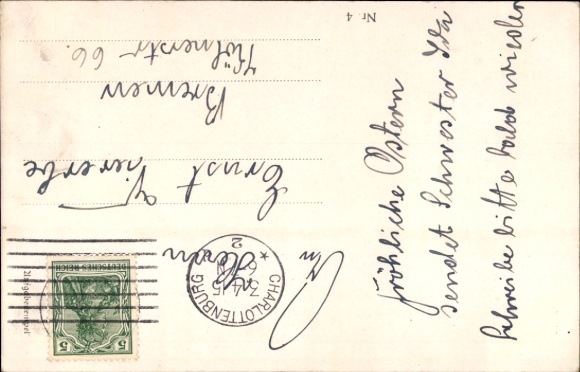 fröhliche Ostern
sendet Schwester Ida
schreibe bitte bald wieder
Nr. 4
An
Herrn
Ernst Viererbe
Bremen
66.
CHARLOTTENBURG
* 2
DEUTSCHES REICH
5